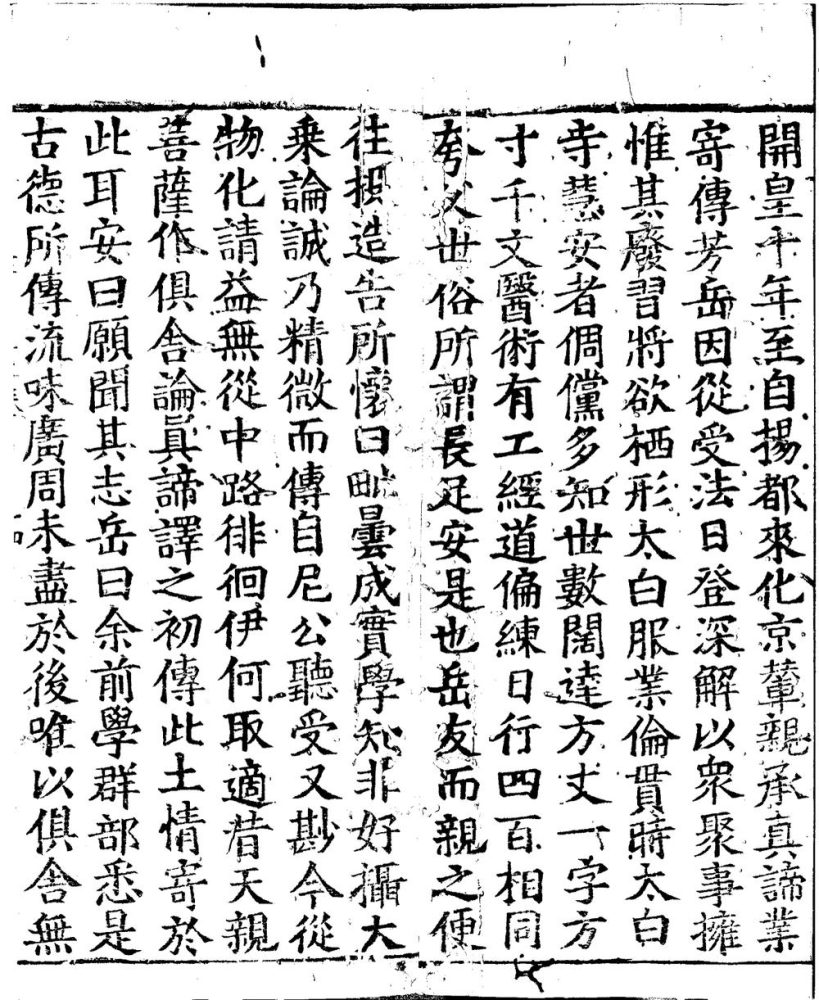 開皇十年至自揚都來化京輦親承真諦業
寄傳芳岳因從受法日登深解以衆聚事擁
惟其廢習將欲栖形太白服業倫貫時太白
寺慧安者倜儻多知世數闊達方丈一字方
寸千文醫術有工經道偏練日行四百相同
夸父世俗所謂長足安是也岳友而親之便
往相造告所懷曰毗曇成實學知非好攝大
乗論誠乃精微而傳自尼公聽受又尠今從
物化請益無從中路徘徊伊何取適昔天親
菩薩作俱舍論真諦譯之初傳此土情寄於
此耳安曰願聞其志岳曰余前學群部悉是
古德所傳流味廣周未盡於後唯以俱舍無